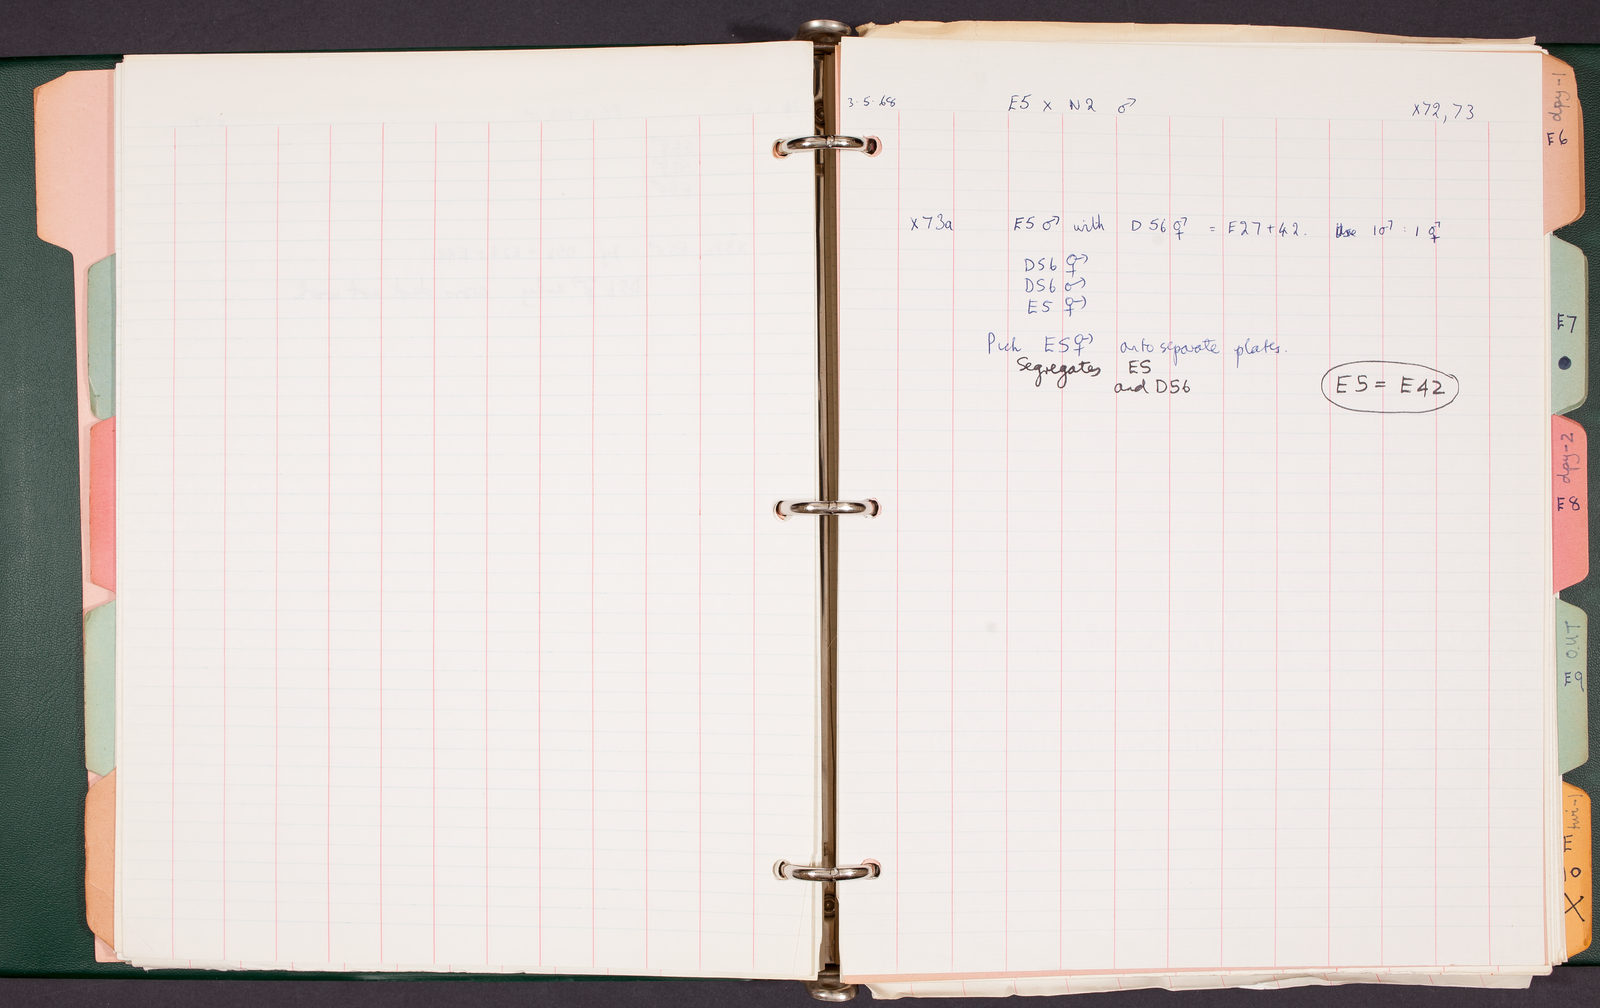 3·5·68 E5 x N2 ♂ x72, 73
x73a E5 ♂ with D56 ⚥ = E27+42. 1♂ : 1 ⚥
D56 ⚥
D56 ♂
E5 ⚥
Pick E5⚥ onto separate plates.
Segregates E5
and D56
E5 = E42
dpy-1
E6
E7
dpy-2
E8
OUT
E9
twi-1
E
10
X